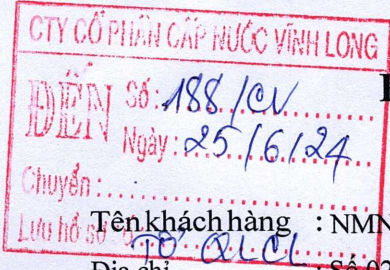 CTY CỔ PHẦN CẤP NƯỚC VĨNH LONG
ĐẾN
Số: 188/CV
Ngày: 25/6/24
Chuyển:
Lưu hồ sơ
TỔ QLCL
Tên khách hàng : NMN
Địa chỉ : Số 02